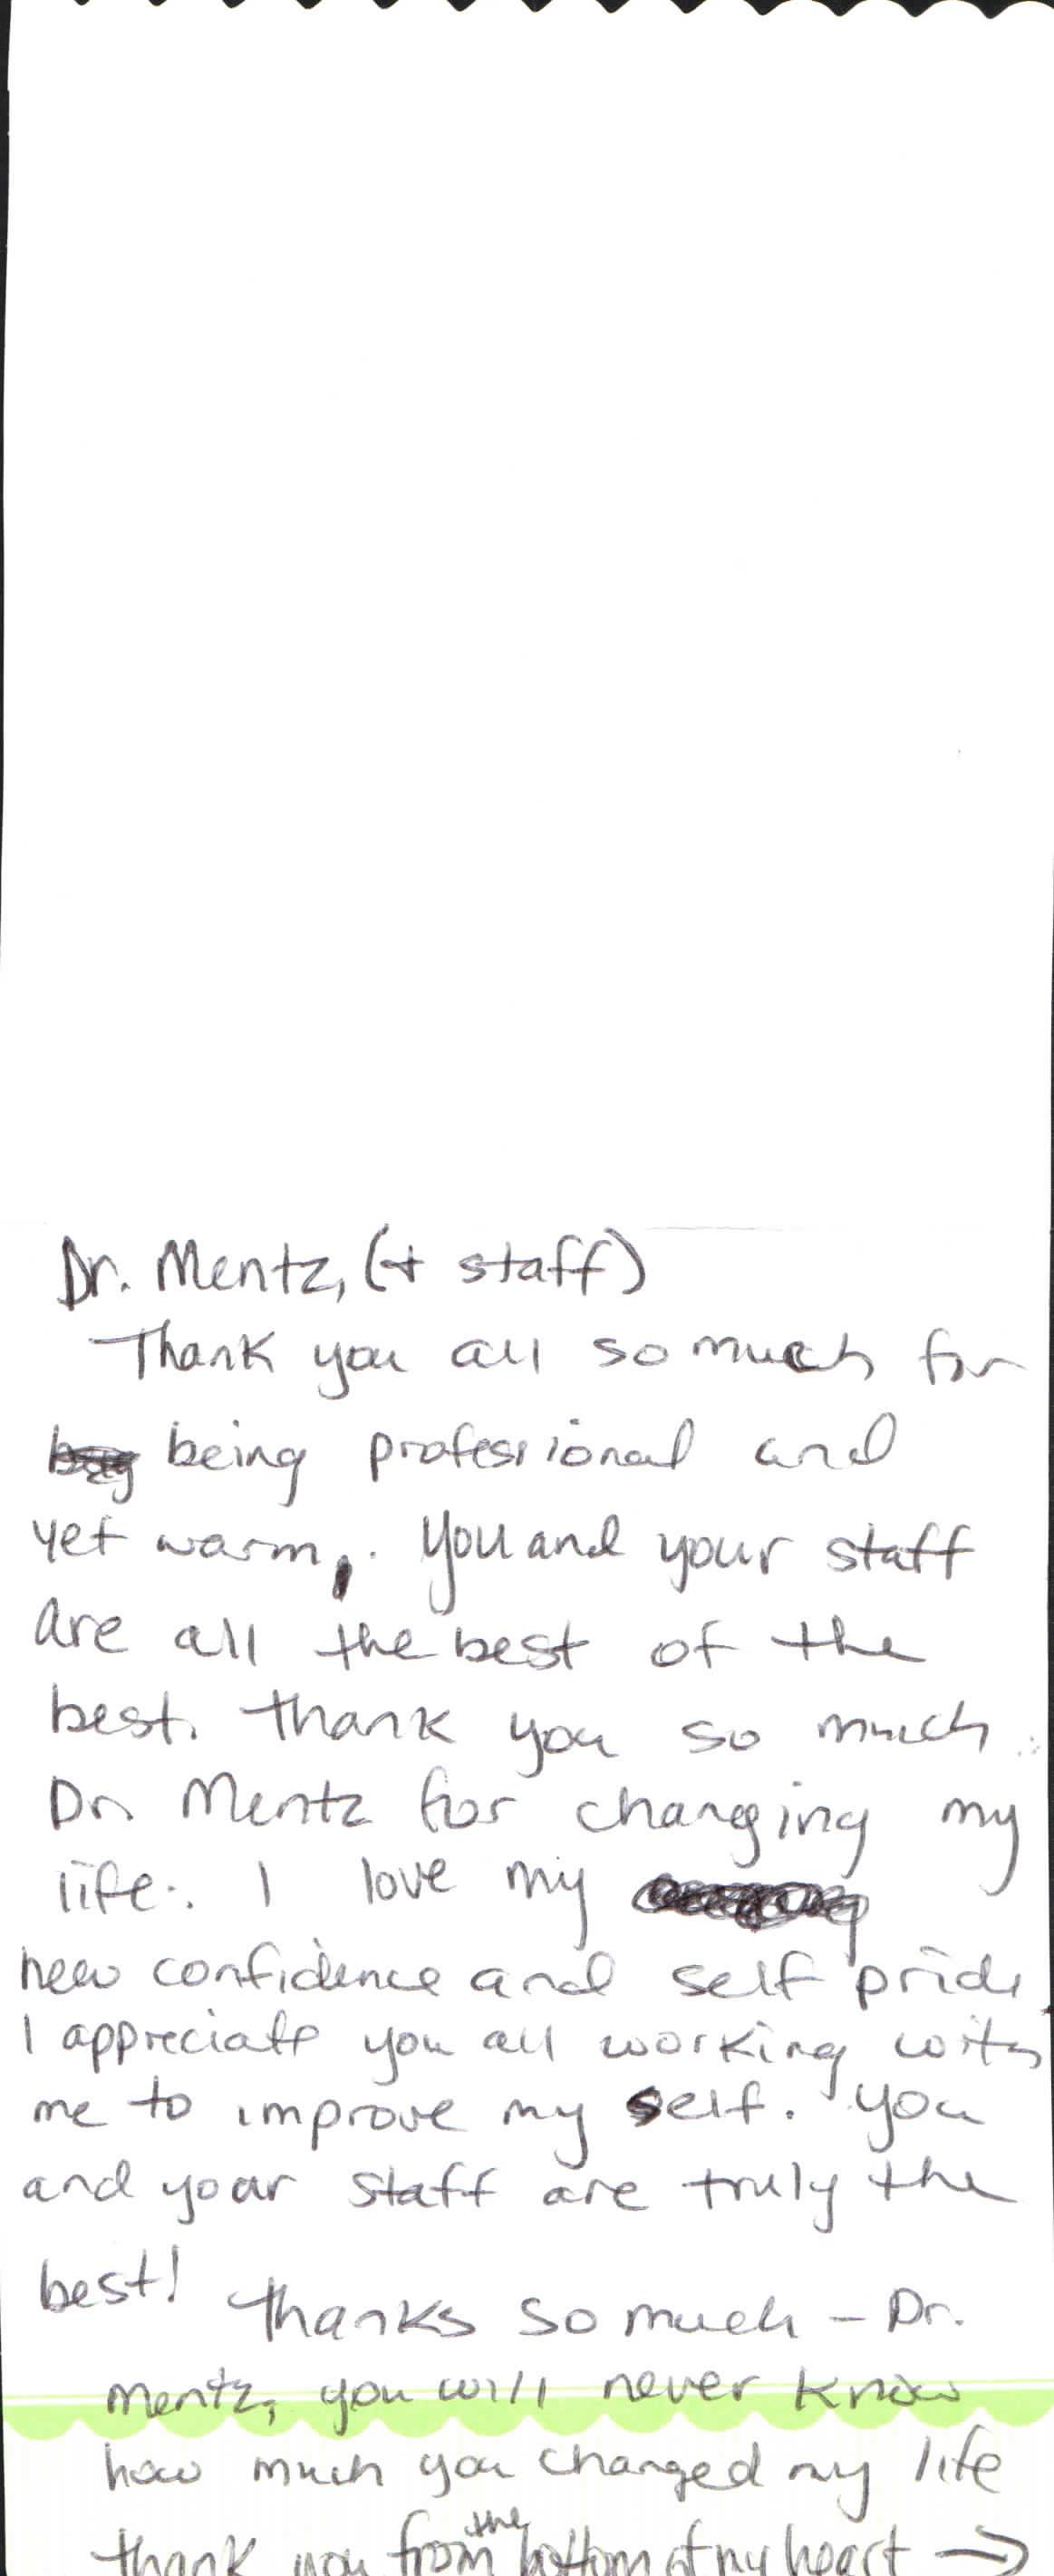 Dr. Mentz, (+ staff)
Thank you all so much for
being professional and
yet warm,. You and your staff
are all the best of the
best. thank you so much
Dr. Mentz for changing my
life. I love my
new confidence and self pride
I appreciate you all working with
me to improve my self. You
and your staff are truly the
best!
Thanks so much - Dr.
Mentz, you will never know
how much you changed my life
thank you from the bottom of my heart →